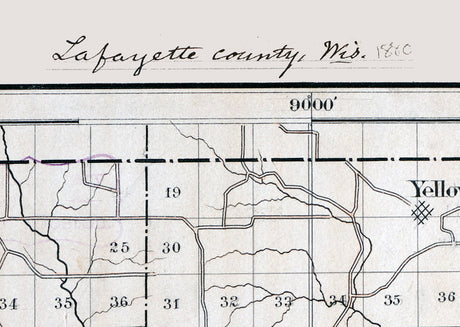 Lafayette county, Wis. 1860
9000'
19
Yellow
25 30
34 35 36 31 32 33 34 35 36